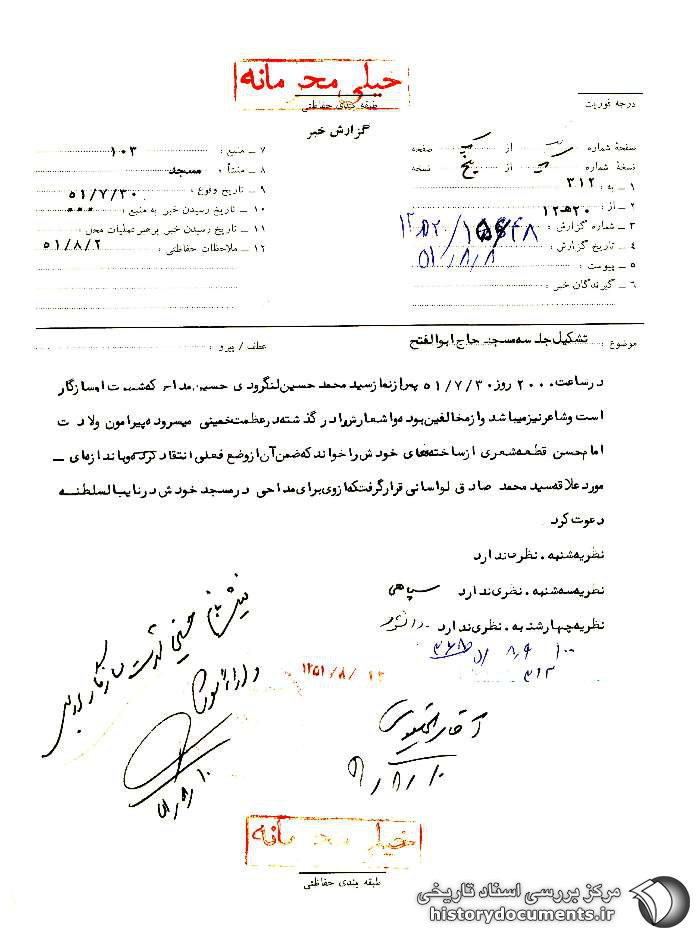 خیلی محرمانه
طبقه بندی حفاظتی
گزارش خبر
درجه فوریت
صفحهٔ شماره یک از یک صفحه
نسخهٔ شماره یک از پنج نسخه
۱ ـ به : ۳۱۲
۲ ـ از : ۲۰ هـ ۱۲
۳ ـ شماره گزارش :
۴ ـ تاریخ گزارش : ۵۱/۸/۸
۵ ـ پیوست :
۶ ـ گیرندگان خبر :
۷ ـ منبع : ۱۰۳
۸ ـ منشأ : مسجد
۹ ـ تاریخ وقوع : ۵۱/۷/۳۰
۱۰ ـ تاریخ رسیدن خبر به منبع : ۰۰۰
۱۱ ـ تاریخ رسیدن خبر برهبر عملیات محل :
۱۲ ـ ملاحظات حفاظتی : ۵۱/۸/۲
موضوع : تشکیل جلسه مسجد حاج ابوالفتح
عطف / پیرو :
درساعت ۲۰۰۰ روز ۵۱/۷/۳۰ پس از نماز سید محمد حسین لنگرودی حسین مداح که شهرت او سازگار
است و شاعر نیز میباشد و از مخالفین بوده و اشعارش را در گذشته در عظمت خمینی میسروده پیرامون ولادت
امام حسن قطعه شعری از ساخته های خودش را خواند که ضمن آن از وضع فعلی انتقاد کرده و باندازه ای ـ
مورد علاقه سید محمد صادق لواسانی قرار گرفت که از وی برای مداحی در مسجد خودش در نایب السلطنه
دعوت کرد
نظریه شنبه . نظری ندارد
نظریه سه شنبه . نظری ندارد سپاهی
نظریه چهارشنبه . نظری ندارد . دانشور
۳۱۲
۱۳۵۱/۸/۱۳
آقای
۵۱/۸/۱۰
خیلی محرمانه
طبقه بندی حفاظتی
مرکز بررسی اسناد تاریخی
historydocuments.ir